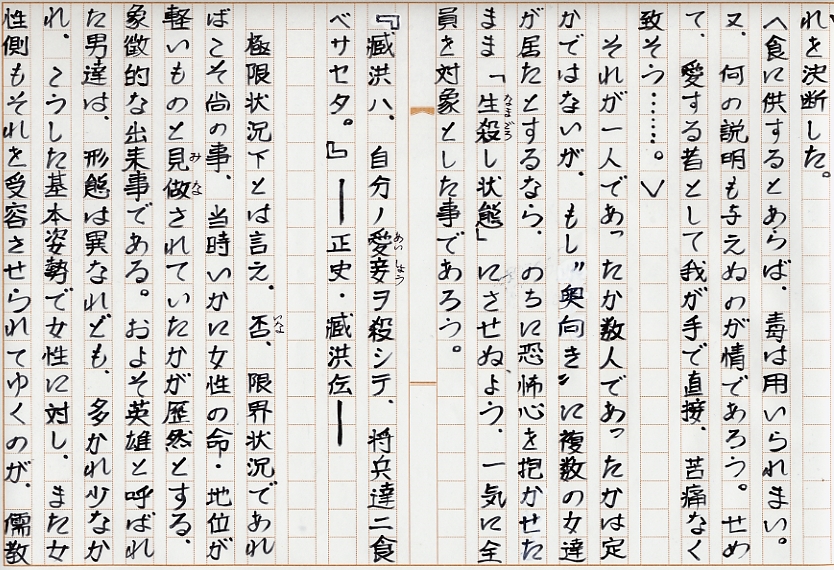 れを決断した。
へ食に供するとあらば、毒は用いられまい。
又、何の説明も与えぬのが情であろう。せめ
て、愛する者として我が手で直接、苦痛なく
致そう……。〉
それが一人であったか数人であったかは定
かではないが、もし〃奥向き〃に複数の女達
が居たとするなら、のちに恐怖心を抱かせた
まま「生殺し状態」にさせぬよう、一気に全
員を対象とした事であろう。
『臧洪ハ、自分ノ愛妾ヲ殺シテ、将兵達ニ食
ベサセタ。』——正史・臧洪伝——
極限状況下とは言え、否、限界状況であれ
ばこそ尚の事、当時いかに女性の命・地位が
軽いものと見做されていたかが歴然とする、
象徴的な出来事である。およそ英雄と呼ばれ
た男達は、形態は異なれども、多かれ少なか
れ、こうした基本姿勢で女性に対し、また女
性側もそれを受容させられてゆくのが、儒教